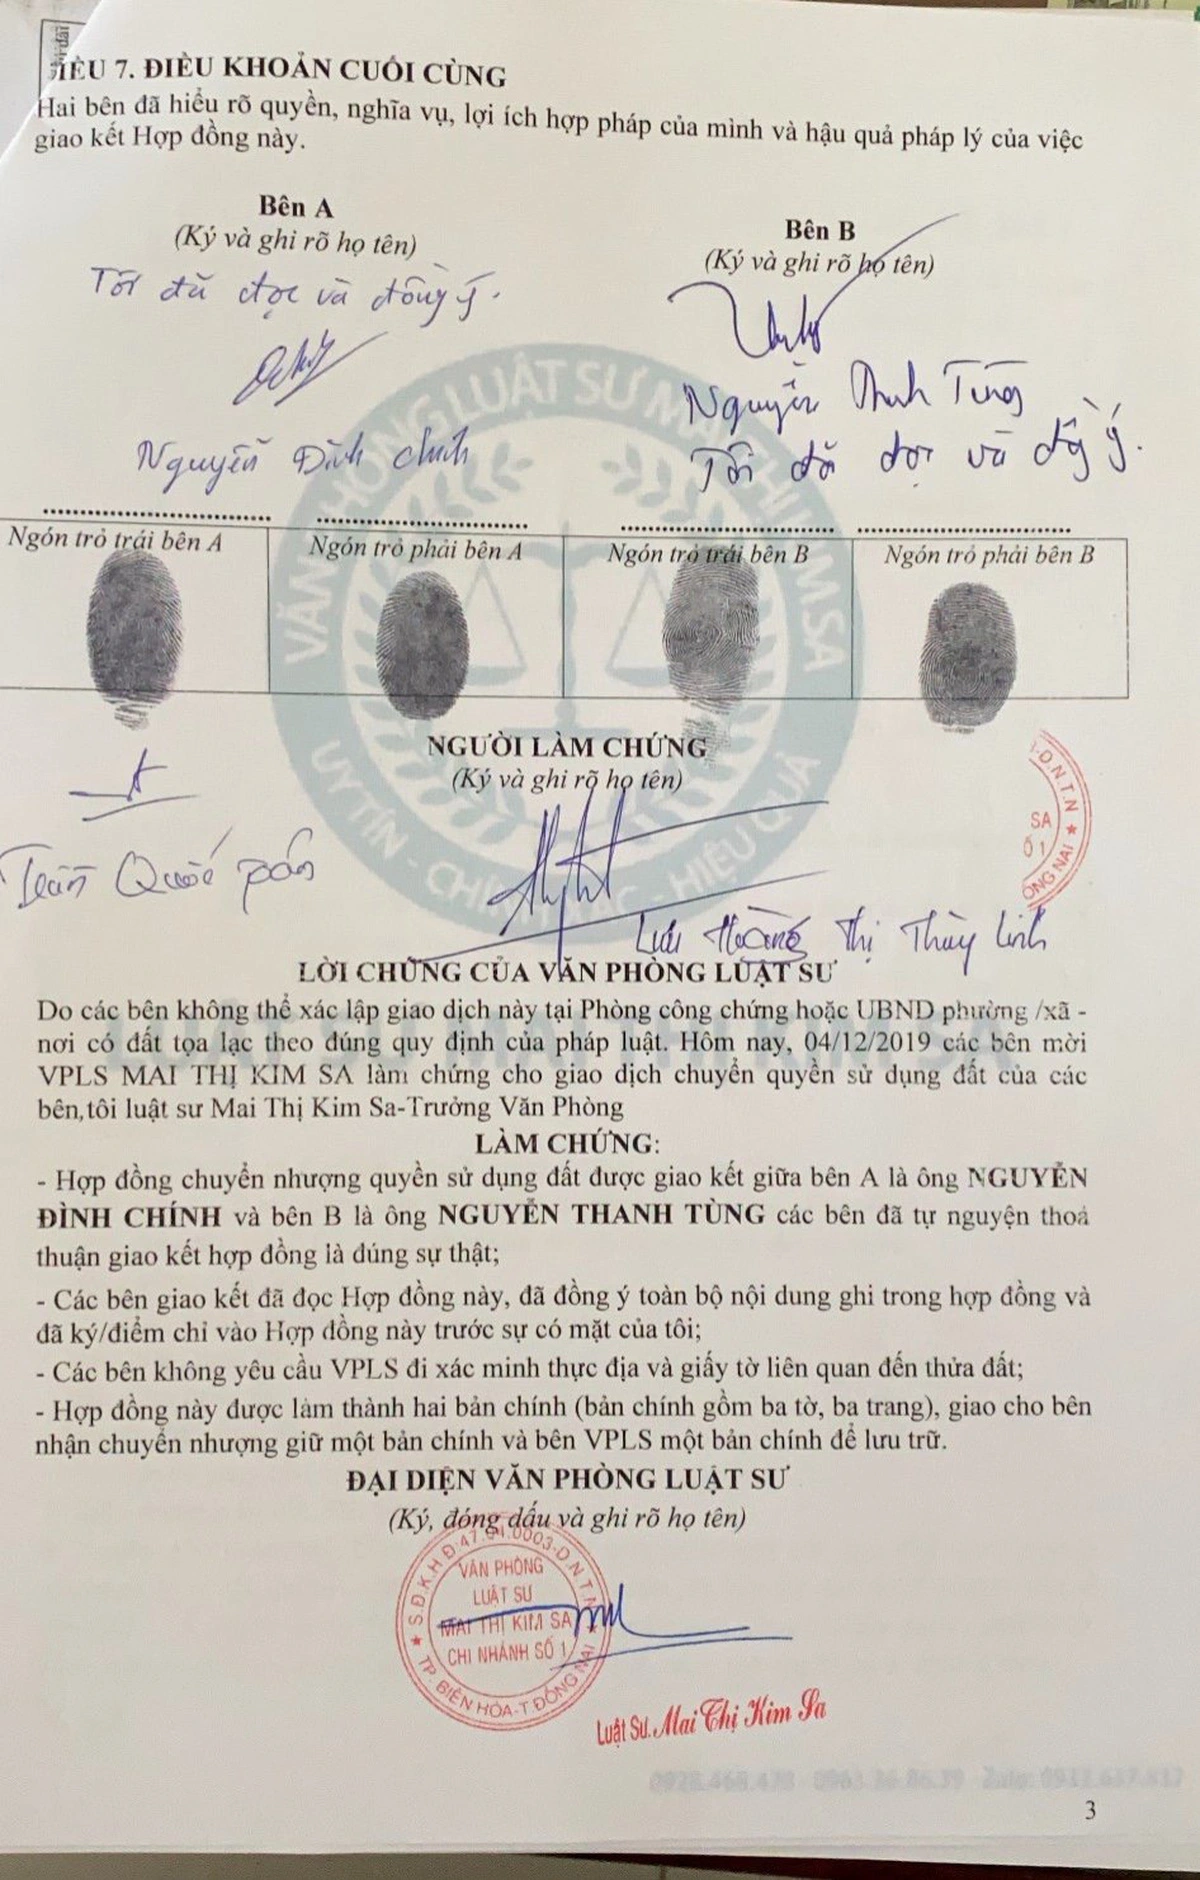 ĐIỀU 7. ĐIỀU KHOẢN CUỐI CÙNG
Hai bên đã hiểu rõ quyền, nghĩa vụ, lợi ích hợp pháp của mình và hậu quả pháp lý của việc
giao kết Hợp đồng này.
Bên A
(Ký và ghi rõ họ tên)
Tôi đã đọc và đồng ý.
Nguyễn Đình Chính
Bên B
(Ký và ghi rõ họ tên)
Nguyễn Thanh Tùng
Tôi đã đọc và đồng ý.
Ngón trỏ trái bên A
Ngón trỏ phải bên A
Ngón trỏ trái bên B
Ngón trỏ phải bên B
VĂN PHÒNG LUẬT SƯ MAI THỊ KIM SA
UY TÍN - CHÍNH XÁC - HIỆU QUẢ
NGƯỜI LÀM CHỨNG
(Ký và ghi rõ họ tên)
Trần Quốc
Lưu Hoàng Thị Thùy Linh
.D.N.T.N
SA
Ố 1
ĐỒNG NAI
LỜI CHỨNG CỦA VĂN PHÒNG LUẬT SƯ
Do các bên không thể xác lập giao dịch này tại Phòng công chứng hoặc UBND phường /xã -
nơi có đất tọa lạc theo đúng quy định của pháp luật. Hôm nay, 04/12/2019 các bên mời
VPLS MAI THỊ KIM SA làm chứng cho giao dịch chuyển quyền sử dụng đất của các
bên,tôi luật sư Mai Thị Kim Sa-Trưởng Văn Phòng
LÀM CHỨNG:
- Hợp đồng chuyển nhượng quyền sử dụng đất được giao kết giữa bên A là ông NGUYỄN
ĐÌNH CHÍNH và bên B là ông NGUYỄN THANH TÙNG các bên đã tự nguyện thoả
thuận giao kết hợp đồng là đúng sự thật;
- Các bên giao kết đã đọc Hợp đồng này, đã đồng ý toàn bộ nội dung ghi trong hợp đồng và
đã ký/điểm chỉ vào Hợp đồng này trước sự có mặt của tôi;
- Các bên không yêu cầu VPLS đi xác minh thực địa và giấy tờ liên quan đến thửa đất;
- Hợp đồng này được làm thành hai bản chính (bản chính gồm ba tờ, ba trang), giao cho bên
nhận chuyển nhượng giữ một bản chính và bên VPLS một bản chính để lưu trữ.
ĐẠI DIỆN VĂN PHÒNG LUẬT SƯ
(Ký, đóng dấu và ghi rõ họ tên)
S.Đ.K.H.Đ:47.01.0003-D.N.T.N
VĂN PHÒNG
LUẬT SƯ
MAI THỊ KIM SA
CHI NHÁNH SỐ 1
TP. BIÊN HÒA-T.ĐỒNG NAI
Luật Sư. Mai Thị Kim Sa
3